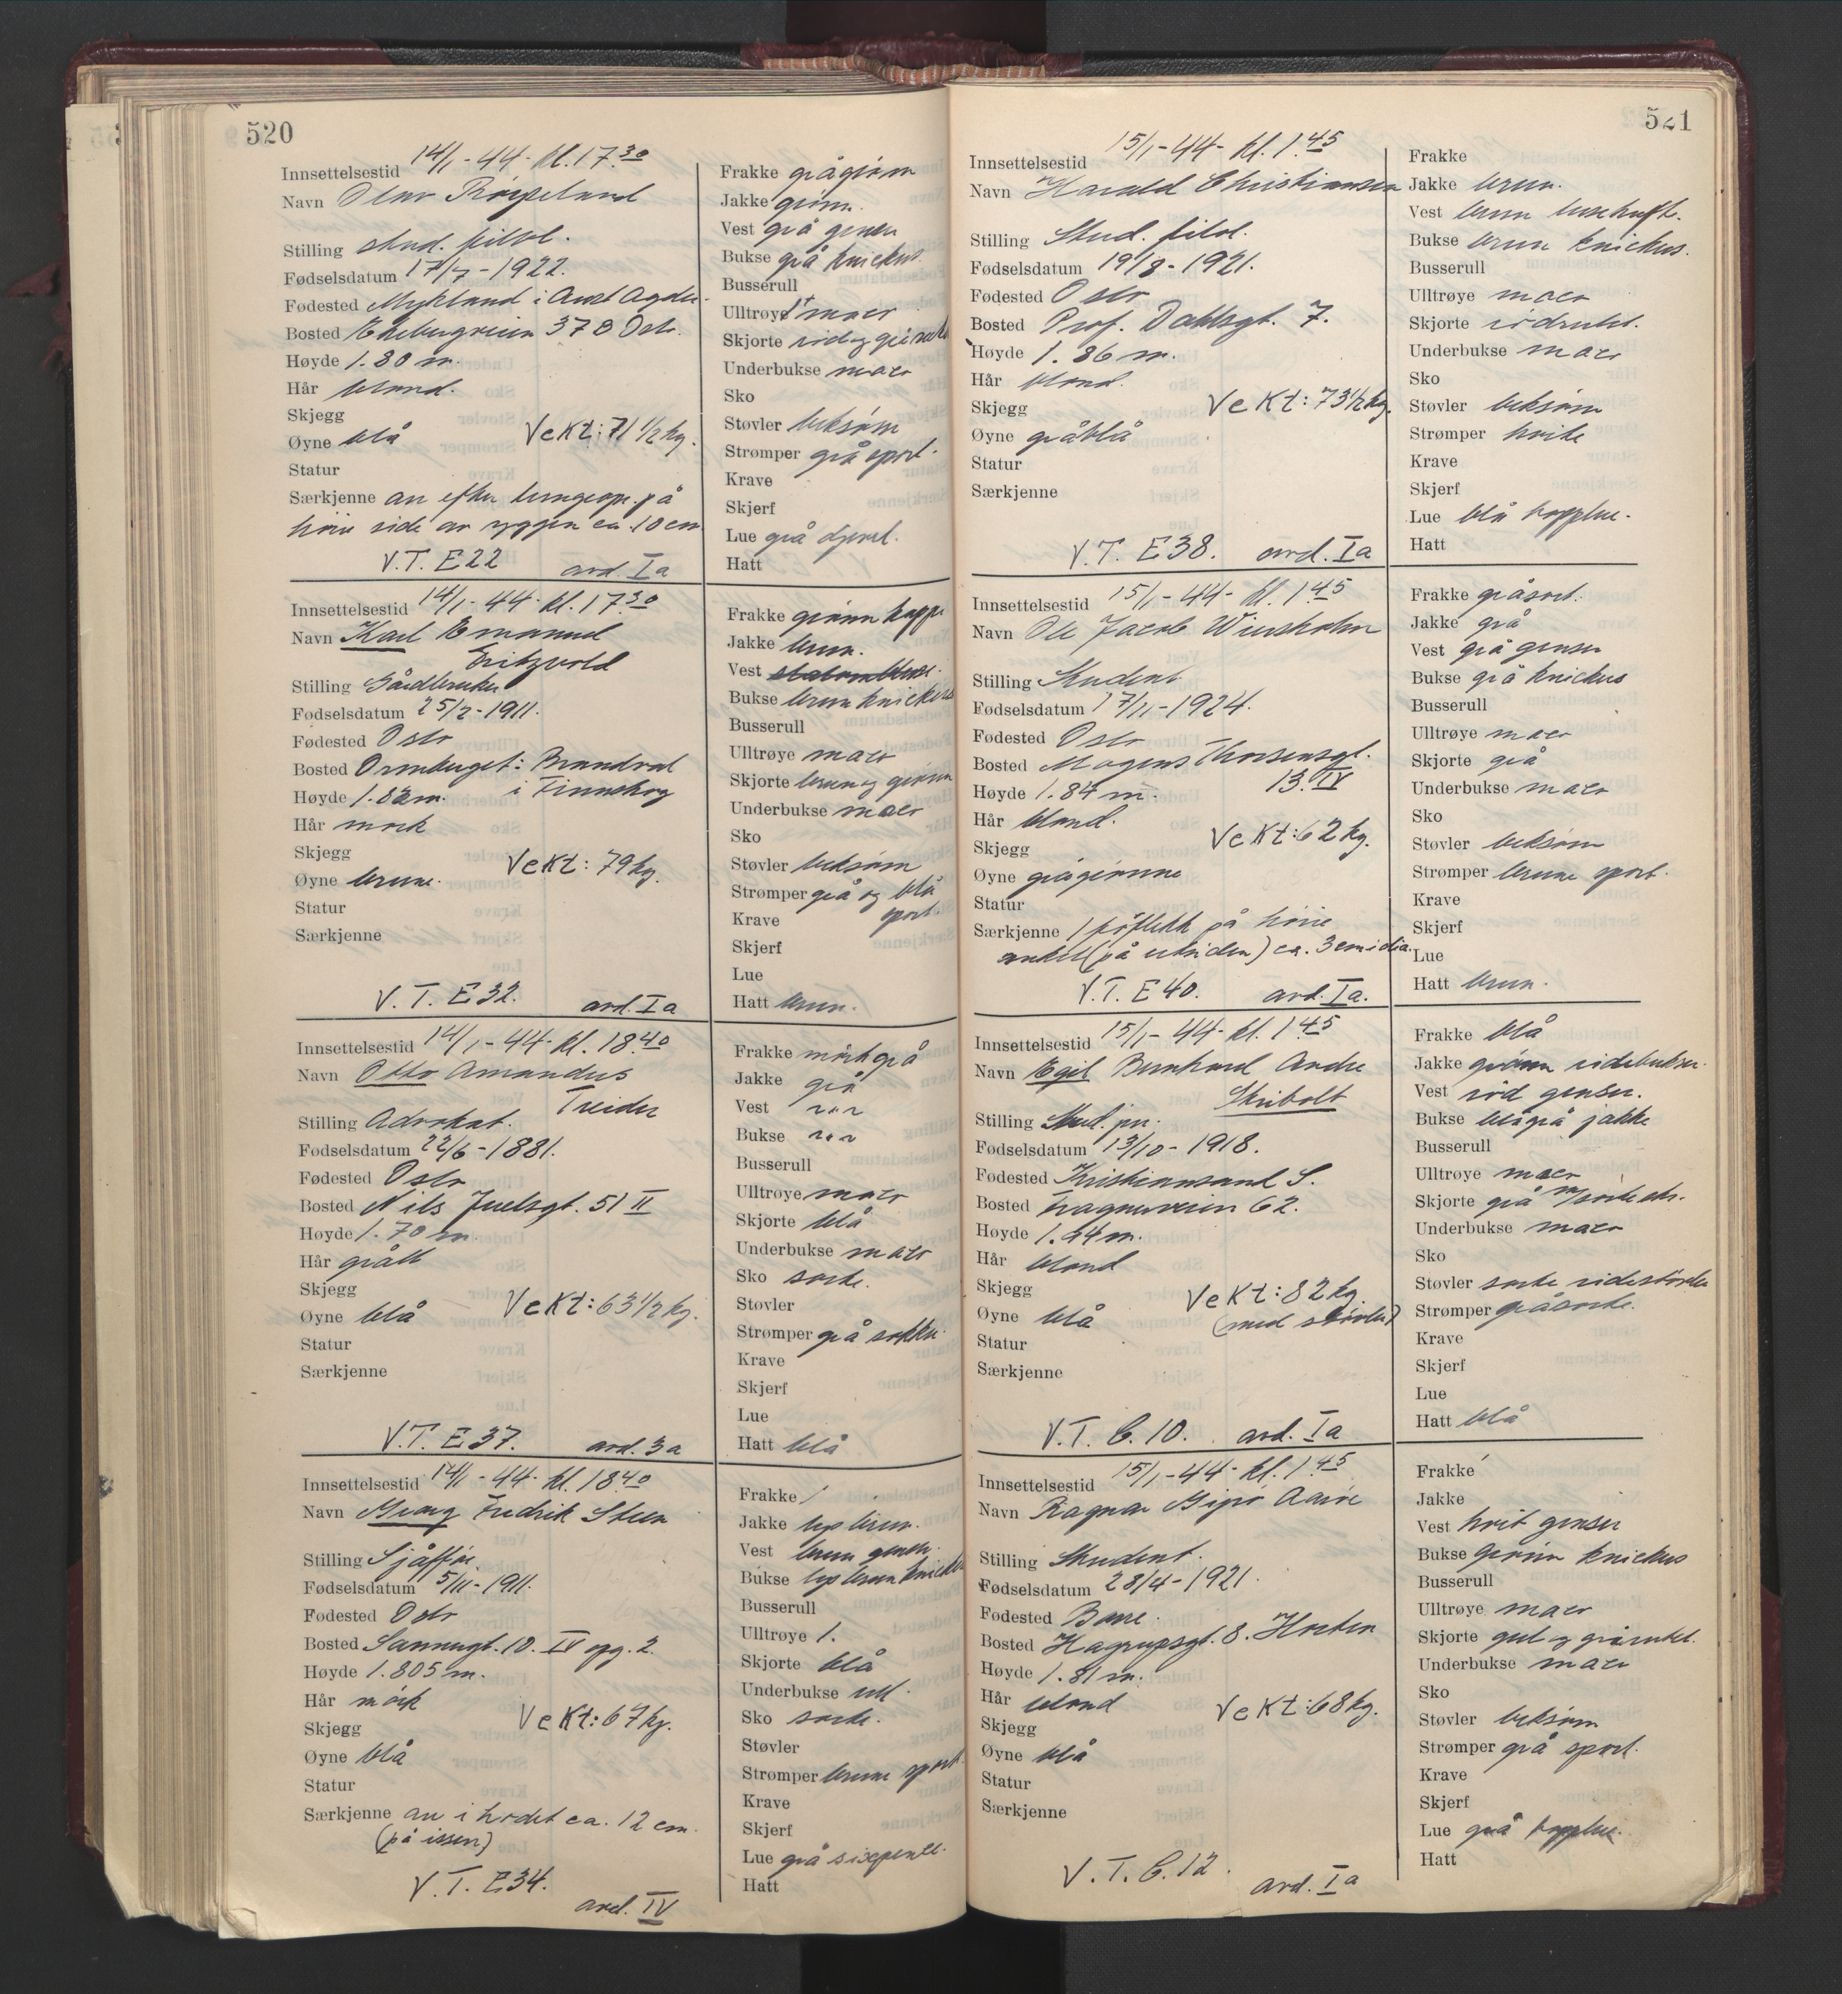 520
Innsettelsestid 14/1-44- kl. 17.30
Navn Olav Røgeland
Stilling stud. filol.
Fødselsdatum 17/7-1922.
Fødested Mykland i Aust Agder.
Bosted Ekebergveien 37 B Oslo.
Høyde 1.80 m.
Hår blond.
Skjegg
Øyne blå Vekt: 71 1/2 kg.
Statur
Særkjenne arr efter lungeop. på
høire side av ryggen ca. 10 cm
V.T. E22 avd. Ia
Frakke grågrønn
Jakke grønn.
Vest grå genser
Bukse grå knickers.
Busserull
Ulltrøye 1+ maco
Skjorte rød og
Underbukse maco
Sko
Støvler beksøm
Strømper grå sport.
Krave
Skjerf
Lue grå
Hatt
Innsettelsestid 14/1-44- kl. 17.30
Navn Karl Emanuel
Fritzvold
Stilling Gårdbruker
Fødselsdatum 25/2-1911.
Fødested Oslo
Bosted Ormberget: Brandval
i Finnskog
Høyde 1.82 m.
Hår mørk
Skjegg
Øyne brune. Vekt: 79 kg.
Statur
Særkjenne
V.T. E32. avd. Ia
Frakke grønn kappe
Jakke brun.
Vest
Bukse brun knickers
Busserull
Ulltrøye maco
Skjorte brun og grønn
Underbukse maco
Sko
Støvler beksøm
Strømper grå og blå
sport.
Krave
Skjerf
Lue
Hatt brun.
Innsettelsestid 14/1-44- kl. 18.40
Navn Otto Amandus
Treider
Stilling Advokat.
Fødselsdatum 22/6-1881.
Fødested Oslo
Bosted Nils Juelsgt. 51 II
Høyde 1.70 m.
Hår grått
Skjegg
Øyne blå Vekt: 63 1/2 kg.
Statur
Særkjenne
V.T. E37. avd. 3a
Frakke mørk grå
Jakke grå
Vest -"-
Bukse -"-
Busserull
Ulltrøye maco
Skjorte blå
Underbukse maco
Sko sorte.
Støvler
Strømper grå sokker
Krave
Skjerf
Lue
Hatt blå
Innsettelsestid 14/1-44- kl. 18.40
Navn Georg Fredrik Steen
Stilling Sjåffør.
Fødselsdatum 5/11-1911.
Fødested Oslo
Bosted Sannergt. 10. IV opg. 2.
Høyde 1.805 m.
Hår mørk
Skjegg
Øyne blå Vekt: 67 kg.
Statur
Særkjenne arr i hodet ca. 12 cm.
(på issen)
V.T. E34.
avd. IV
Frakke /
Jakke lys brun.
Vest brun genser.
Bukse lys brun knickers
Busserull
Ulltrøye 1.
Skjorte blå
Underbukse ull.
Sko sorte.
Støvler
Strømper brune sport.
Krave
Skjerf
Lue grå sixpence.
Hatt
521
Innsettelsestid 15/1-44- kl. 1.45
Navn Harald Christiansen
Stilling Stud. filol.
Fødselsdatum 19/8-1921.
Fødested Oslo
Bosted Prof. Dahlsgt. 7.
Høyde 1.86 m.
Hår blond.
Skjegg Vekt: 73 1/2 kg.
Øyne gråblå
Statur
Særkjenne
V.T. E38. avd. Ia
Frakke
Jakke brun.
Vest brun
Bukse brun knickers.
Busserull
Ulltrøye maco
Skjorte rødrutet.
Underbukse maco
Sko
Støvler beksøm
Strømper hvite
Krave
Skjerf
Lue blå topplue.
Hatt
Innsettelsestid 15/1-44- kl. 1.45
Navn Ole Jacob Wiersholm
Stilling Student
Fødselsdatum 17/11-1924.
Fødested Oslo
Bosted Mogens Thorsensgt.
13. IV
Høyde 1.84 m.
Hår blond.
Skjegg Vekt: 62 kg.
Øyne grågrønne
Statur
Særkjenne 1 føflekk på høire
ankel (på utsiden) ca. 3 cm i dia.
V.T. E40. avd. Ia.
Frakke gråsort.
Jakke grå
Vest grå genser
Bukse grå knickers
Busserull
Ulltrøye maco
Skjorte grå
Underbukse maco
Sko
Støvler beksøm
Strømper brune sport.
Krave
Skjerf
Lue
Hatt brun.
Innsettelsestid 15/1-44- kl. 1.45
Navn Egil Bernhard Andre
Skribolt
Stilling Stud. jur.
Fødselsdatum 13/10-1918.
Fødested Kristiansand S.
Bosted Frognerveien 62.
Høyde 1.44 m.
Hår blond
Skjegg
Øyne blå Vekt: 82 kg.
(med støvler)
Statur
Særkjenne
V.T. C.10. avd. Ia
Frakke blå
Jakke grønn ridebukser.
Vest rød genser.
Bukse blågrå jakke
Busserull
Ulltrøye maco
Skjorte grå m/sorte str.
Underbukse maco
Sko
Støvler sorte ridestøvler
Strømper gråsorte.
Krave
Skjerf
Lue
Hatt blå
Innsettelsestid 15/1-44- kl. 1.45
Navn Ragnar Aarøe
Stilling Student.
Fødselsdatum 28/4-1921.
Fødested Borre.
Bosted Hagrupsgt. 8. Horten
Høyde 1.81 m.
Hår blond
Skjegg Vekt: 68 kg.
Øyne blå
Statur
Særkjenne
V.T. C.12.
avd. Ia
Frakke
Jakke
Vest hvit genser
Bukse grønn knickers
Busserull
Ulltrøye maco
Skjorte gul og grårutet.
Underbukse maco
Sko
Støvler beksøm
Strømper grå sport.
Krave
Skjerf
Lue grå topplue.
Hatt